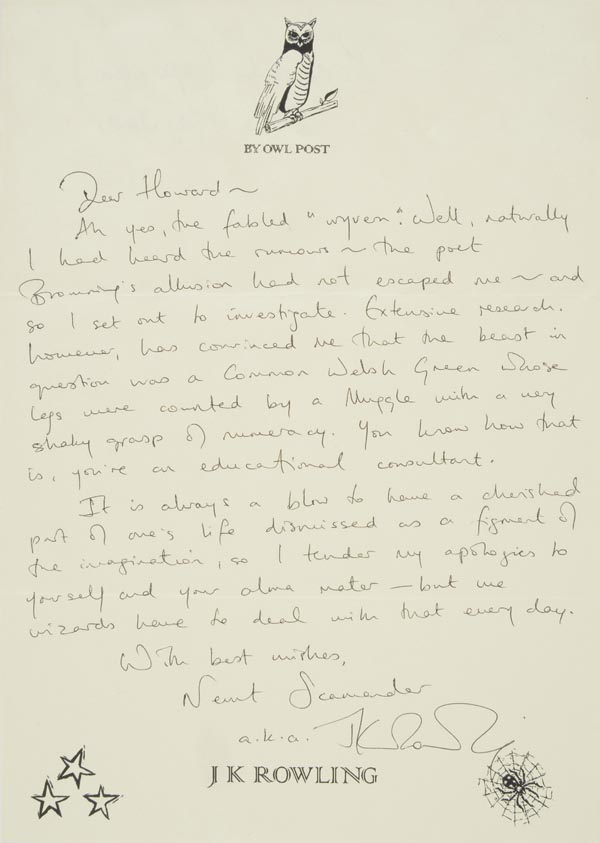 BY OWL POST
Dear Howard ~
Ah yes, the fabled "wyvern". Well, naturally
I had heard the rumours ~ the poet
Browning's allusion had not escaped me ~ and
so I set out to investigate. Extensive research,
however, has convinced me that the beast in
question was a Common Welsh Green whose
legs were counted by a Muggle with a very
shaky grasp of numeracy. You know how that
is, you're an educational consultant.
It is always a blow to have a cherished
part of one's life dismissed as a figment of
the imagination, so I tender my apologies to
yourself and your alma mater — but we
wizards have to deal with that every day.
With best wishes,
Newt Scamander
a.k.a. JK Rowling
J K ROWLING